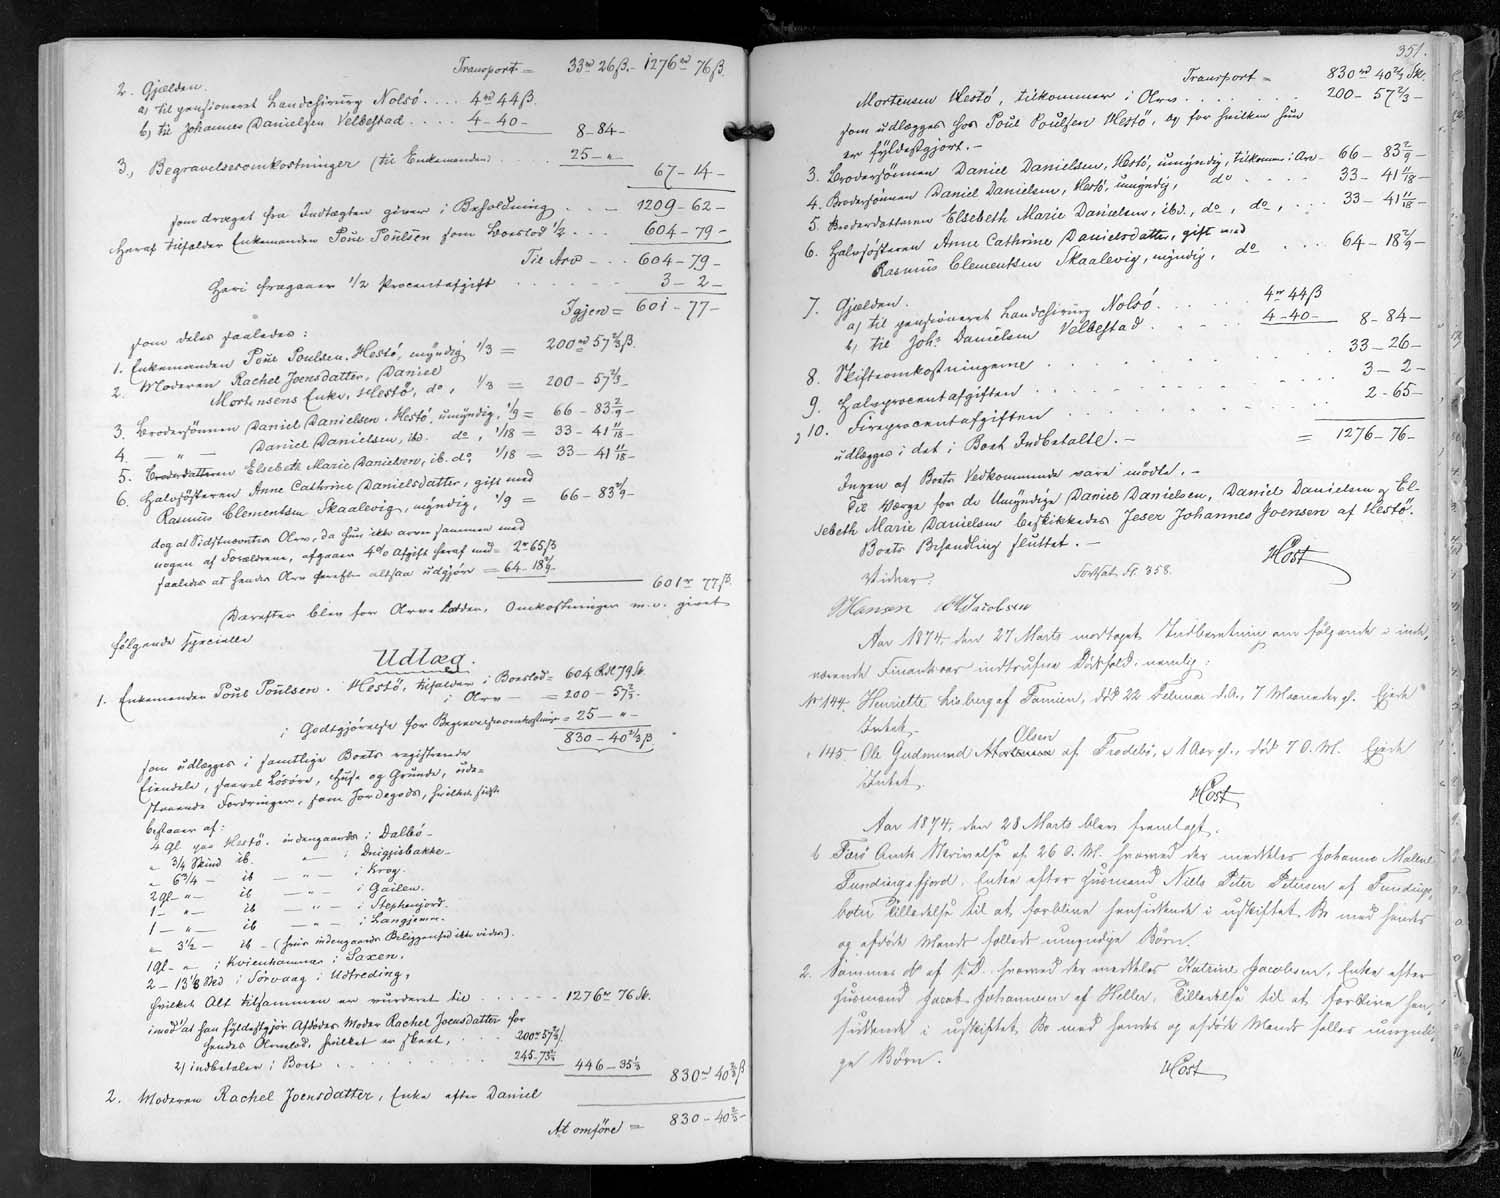 Transport = 33 rd 26 β. - 1276 rd 76 β.
2. Gjælden.
a) til pensioneret Landchirurg Nolsö .... 4 rd 44 β.
b) til Johannes Danielsen Velbestad .... 4 - 40 -
8 - 84 -
3., Begravelsesomkostninger (til Enkemanden) .... 25 - " -
67 - 14 -
som draget fra Indtægten giver i Beholdning .... 1209 - 62 -
Heraf tilfalder Enkemanden Poul Poulsen som Boeslod 1/2 ... 604 - 79 -
Til Arv - .. 604 - 79 -
Heri fragaaer 1/2 Procentafgift ...... 3 - 2 -
Igjen = 601 - 77 -
som deles saaledes:
1. Enkemanden Poul Poulsen, Hestö, myndig 1/3 = 200 rd 57 2/3 β.
2. Moderen Rachel Joensdatter, Daniel
Mortensens Enke, Hestö, do, 1/3 = 200 - 57 2/3 -
3. Brodersönnen Daniel Danielsen, Hestö, umyndig, 1/9 = 66 - 83 2/9 -
4. — " — Daniel Danielsen, ibd. do, 1/18 = 33 - 41 11/18 -
5. Broderdatteren Elsebeth Marie Danielsen, ib. do, 1/18 = 33 - 41 11/18 -
6. Halvsösteren Anne Cathrine Danielsdatter, gift med
Rasmus Clementsen Skaalevig, myndig, 1/9 = 66 - 83 2/9 -
dog at Sidstnævntes Arv, da hun ikke arver sammen med
nogen af Forældrene, afgaaer 4% Afgift heraf med = 2 rd 65 β
saaledes at hendes Arv herefter altsaa udgjöre = 64 - 18 2/9 -
601 rd 77 β.
Derefter blev for Arvelodder, Omkostninger m.v. givet
fölgende specielle
Udlæg.
1. Enkemanden Poul Poulsen, Hestö, tilfalder i Boeslod = 604 Rd 79 Sk.
i Arv — = 200 - 57 2/3 -
i Godtgjörelse for Begravelsesomkostninger = 25 - " -
830 - 40 2/3 β
som udlægges i samtlige Boets registrerede
Eiendele, saavel Lösöre, Huse og Grunde, ude-
staaende Fordringer, som Jordegods, hvilket sidste
bestaaer af:
4 Gl. paa Hestö, indengaards i Dalbö -
" 3/4 Skind ib. — " — i Dnigjisbakke -
" 6 3/4 - ib - " - i Krog.
2 Gl - " - ib — " — i Gailen.
1 - " - ib — " — i Stephenjord.
1 - " - ib — " — i Langjamm.
" 3 1/2 - ib - (hvis indengaards Beliggenhed ikke vides).
1 Gl - " i Kvienhammer i Saxen.
2 - 13 1/3 Sk i Sörvaag i Udtreding,
hvilket Alt tilsammen er vurderet til ..... 1276 rd 76 Sk.
imod 1) at han fyldestgjör Afdödes Moder Rachel Joensdatter for
hendes Arvelod, hvilket er skeet, ... 200 rd 57 2/3 β.
2) indbetaler i Boet ....... 245 - 73 2/3
446 - 35 1/3
830 rd 40 2/3 β
2. Moderen Rachel Joensdatter, Enke efter Daniel
At omföre = 830 - 40 2/3 -
351.
Transport = 830 rd 40 2/3 Sk.
Mortensen Hestö, tilkommer i Arv ....... 200 - 57 2/3 -
som udlægges hos Poul Poulsen Hestö, og for hvilken hun
er fyldestgjort. -
3. Brodersönnen Daniel Danielsen, Hestö, umyndig, tilkommer i Arv - 66 - 83 2/9 -
4. Brodersönnen Daniel Danielsen, Hestö, umyndig, do .... 33 - 41 11/18 -
5. Broderdatteren Elsebeth Marie Danielsen, ibd., do, do, ... 33 - 41 11/18 -
6. Halvsösteren Anne Cathrine Danielsdatter, gift med
Rasmus Clementsen Skaalevig, myndig, do ... 64 - 18 2/9 -
7. Gjælden.
a) til pensioneret Landchirurg Nolsö ..... 4 rd 44 β
b) til Johs Danielsen Velbestad ..... 4 - 40 -
8 - 84 -
8. Skifteomkostningerne ........ 33 - 26 -
9. Halvprocentafgiften ........ 3 - 2 -
10. Fireprocentafgiften ........ 2 - 65 -
udlægges i det i Boet Indbetalte. - = 1276 - 76 -
Ingen af Boets Vedkommende vare mödte. -
Til Værge for de Umyndige Daniel Danielsen, Daniel Danielsen og El-
sebeth Marie Danielsen beskikkedes Jeser Johannes Joensen af Hestö.
Boets Behandling sluttet. -
Höst
Vidner:
Fortsat Fol. 358.
Hansen Jacobsen
Aar 1874, den 27 Marts modtoges Indberetning om fölgende i inde,
værende Finantsaar indtrufne Dödsfald, nemlig:
No 144. Henriette Lisberg af Famien, död 22 Februar d.A., 7 Maaneder gl. Ejede
Intet.
" 145. Ole Gudmund Olsen af Frodebö, 1 Aar gl., död 7 d.M. Ejede
Intet.
Höst
Aar 1874, den 28 Marts blev fremlagt.
1. Færö Amts Skrivelse af 26 d. M. hvorved der meddeles Johanne Malene
Fundingsfjord, Enke efter Husmand Niels Peter Petersen af Fundings-
botn Tilladelse til at forblive hensiddende i uskiftet Bo med hendes
og afdöde Mands fælleds umyndige Börn.
2. Sammes do af s.D. hvorved der meddeles Katrine Jacobsen, Enke efter
Husmand Jacob Johannesen af Heller, Tilladelse til at forblive hen,
siddende i uskiftet Bo med hendes og afdöde Mands fælles umyndi,
ge Börn.
Höst